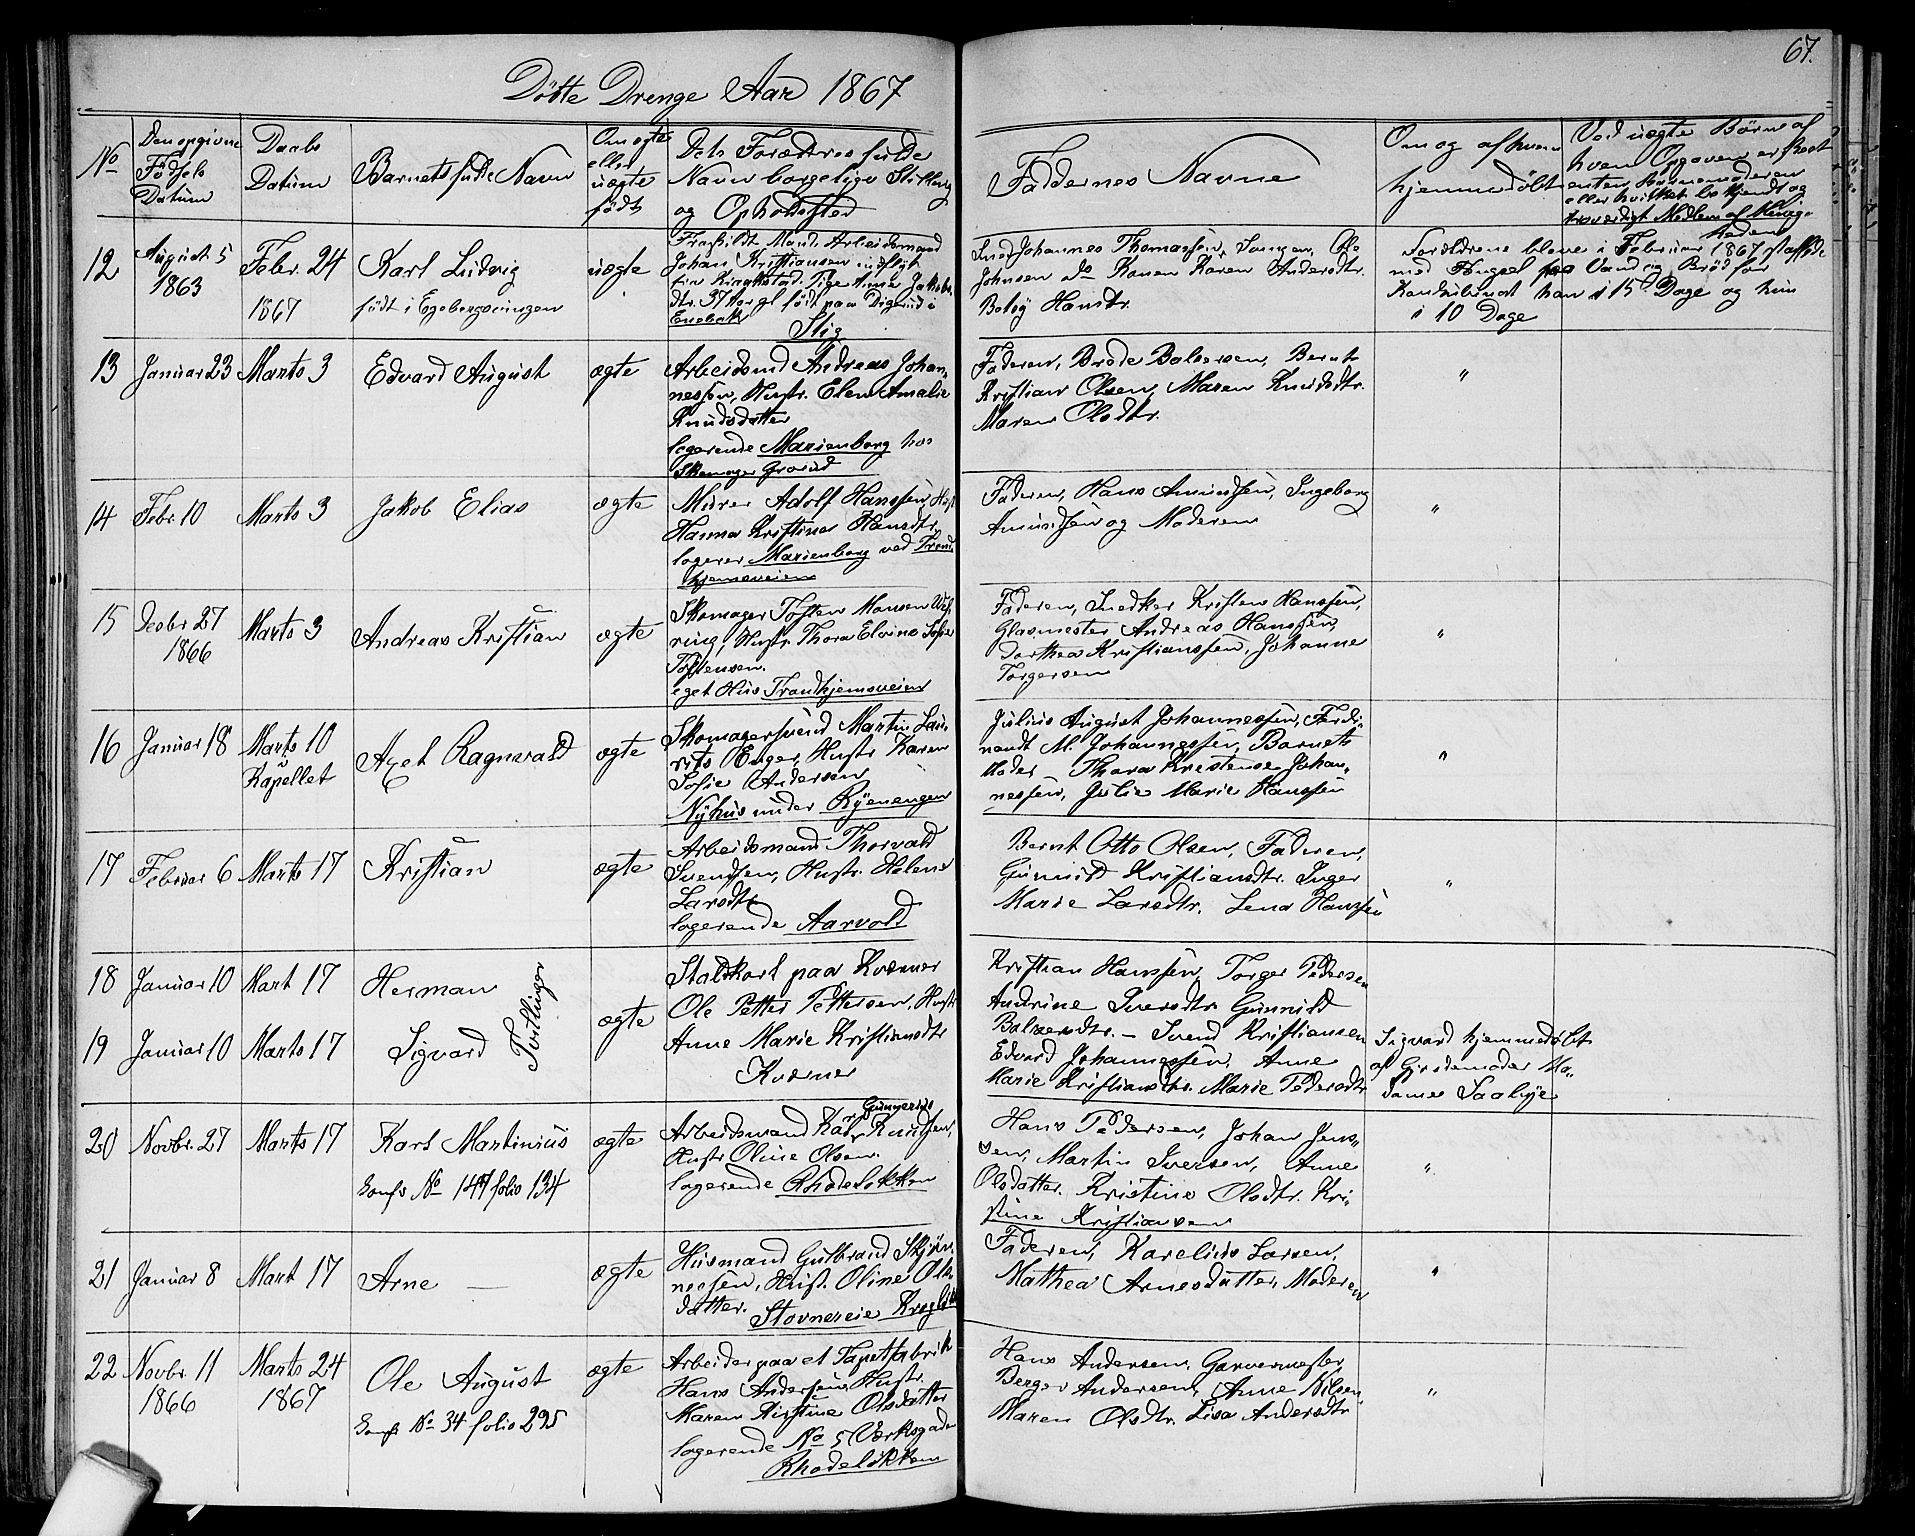 67.
Döbte Drenge Aar 1867
No
Den opgivne Fødsels Datum
Daabs Datum
Barnets fulde Navn
Om ægte eller uægte født
Dets Forældres fulde Navn borgelige Stilling og Opholdssted
Faddernes Navne
Om og af hvem hjemmedøbt
Ved uægte Børn af hvem Opgaven er skeet enten Barnemoderen eller hvilket bekjendt og troværdigt Medlem af Menigheden
12
August 5
1863
Febr. 24
1867
Karl Ludvig
født i Egebergveiningen
uægte
Fraskildt Mand Arbeidsmand
Johan Kristiansen indflyt
fra Kragstad. Pige Anne Jakobs
dtr. 37 Aar gl født paa Digerud i
Enebak
Slig
Smed Johannes Thomassen, Ole
Johnsen do Konen Karen Andersdtr.
Betsy Hansdtr.
Forældrene bleve i Februar 1867 straffede
med Fængsel paa Vand og Brød for
Konkubinat han i 15 Dage og hun
i 10 Dage
13
Januar 23
Marts 3
Edvard August
ægte
Arbeidsmd Andreas Johan-
nessen, Hustr. Elen Amalie
Knudsdatter
logerende Marienborg hos
Skomager Grorud
Faderen, Brede Balversen, Bernt
Kristian Olsen, Maren Knudsdtr.
Maren Olsdtr.
"
14
Febr. 10
Marts 3
Jakob Elias
ægte
Murer Adolf Hanssen, Hust
Hanna Kristine Hansdtr.
logerer Marienborg ved Trond
hjemsveien
Faderen, Hans Amundsen, Ingeborg
Amundsen og Moderen
"
15
Decbr. 27
1866
Marts 3
Andreas Kristian
ægte
Skomager Tosten Monsen
ring, Hustr. Thora Elvine Sofie
Tostensen.
eget Hus Trondhjemsveien
Faderen, Snedker Kristen Hanssen,
Glasmester Andreas Hanssen,
Dorthea Kristianssen, Johanne
Torgersen
"
16
Januar 18
Marts 10
Kapellet
Axel Ragnvald
ægte
Skomagersvend Martin Lau-
rits Enger, Hustr Karen
Sofie Andersen
Nyhus under Ryenengen
Julius August Johannessen, Ferdi-
nandt M. Johannessen, Barnets
Moder Thora Kristense Johan-
nessen, Julie Marie Hanssen
"
17
Februar 6
Marts 17
Kristian
ægte
Arbeidsmand Thorvald
Svendsen, Hustr. Helene
Larsdtr
logerende Aarvold
Bernt Otto Olsen, Faderen,
Gunnild Kristiansdtr. Inger
Marie Larsdtr. Lena Hanssen
"
18
Januar 10
Mart 17
Herman
Tvillinger
19
Januar 10
Marts 17
Sigvard
ægte
Staldkarl paa Kværner
Ole Petter Pettersen, Hustr
Anne Marie Kristiansdtr
Kværner
Kristian Hanssen, Torger Pedersen
Andrine Iversdtr. Gunnild
Balzersdtr. - Svend Kristiansen
Edvard Johannessen, Anne
Marie Kristiansdtr. Marie Pedersdtr
Sigvard hjemmedøbt
af Gjordemoder Ma-
dames Saabye
20
Novbr. 27
Marts 17
Karl Martinius
Conf No 147 folio 134
ægte
Gunnerius
Arbeidsmand Karl Knudsen,
Hustr Oline Olsen.
logerende Rhodeløkken
Hans Pedersen, Johan Jens-
sen, Martin Iversen, Anne
Olsdatter. Kristine Olsdtr. Kri-
stine Kristiansen
"
21
Januar 8
Mart 17
Arne
ægte
Husmand Gulbrand Skjøn-
nessen, Hust. Oline Ols-
datter. Stovnereie
Faderen, Karelius Larsen,
Mathea Arnesdatter, Moderen
"
22
Novbr. 11
1866
Marts 24
1867
Ole August
Conf No 34 folio 295
ægte
Arbeider paa et Tapetfabrik
Hans Andersen, Hustr.
Maren Kirstine Olsdatter
logerende No 5 Værksgaden
Rhodeløkken
Hans Andersen, Garvermester
Berger Andersen, Anne Nilsen
Maren Olsdtr. Lisa Andersdtr
"